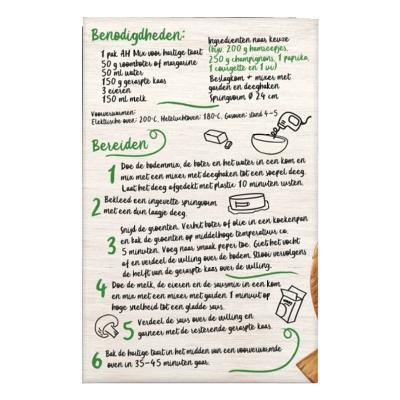 Benodigdheden:
1 pak AH Mix voor hartige taart
50 g roomboter of margarine
50 ml water
150 g geraspte kaas
3 eieren
150 ml melk
Ingrediënten naar keuze
(bijv. 200 g hamreepjes,
250 g champignons, 1 paprika,
1 courgette en 1 ui)
Beslagkom + mixer met
garden en deeghaken
Springvorm Ø 24 cm
Voorverwarmen:
Elektrische oven: 200°C, Heteluchtoven: 180°C, Gasoven: stand 4-5
Bereiden
1 Doe de bodemmix, de boter en het water in een kom en
mix met een mixer met deeghaken tot een soepel deeg.
Laat het deeg afgedekt met plastic 10 minuten rusten.
2 Bekleed een ingevette springvorm
met een dun laagje deeg.
3 Snijd de groenten. Verhit boter of olie in een koekenpan
en bak de groenten op middelhoge temperatuur ca.
5 minuten. Voeg naar smaak peper toe. Giet het vocht
af en verdeel de vulling over de bodem. Strooi vervolgens
de helft van de geraspte kaas over de vulling.
4 Doe de melk, de eieren en de sausmix in een kom
en mix met een mixer met garden 1 minuut op
hoge snelheid tot een gladde saus.
5 Verdeel de saus over de vulling en
garneer met de resterende geraspte kaas.
6 Bak de hartige taart in het midden van een voorverwarmde
oven in 35-45 minuten gaar.